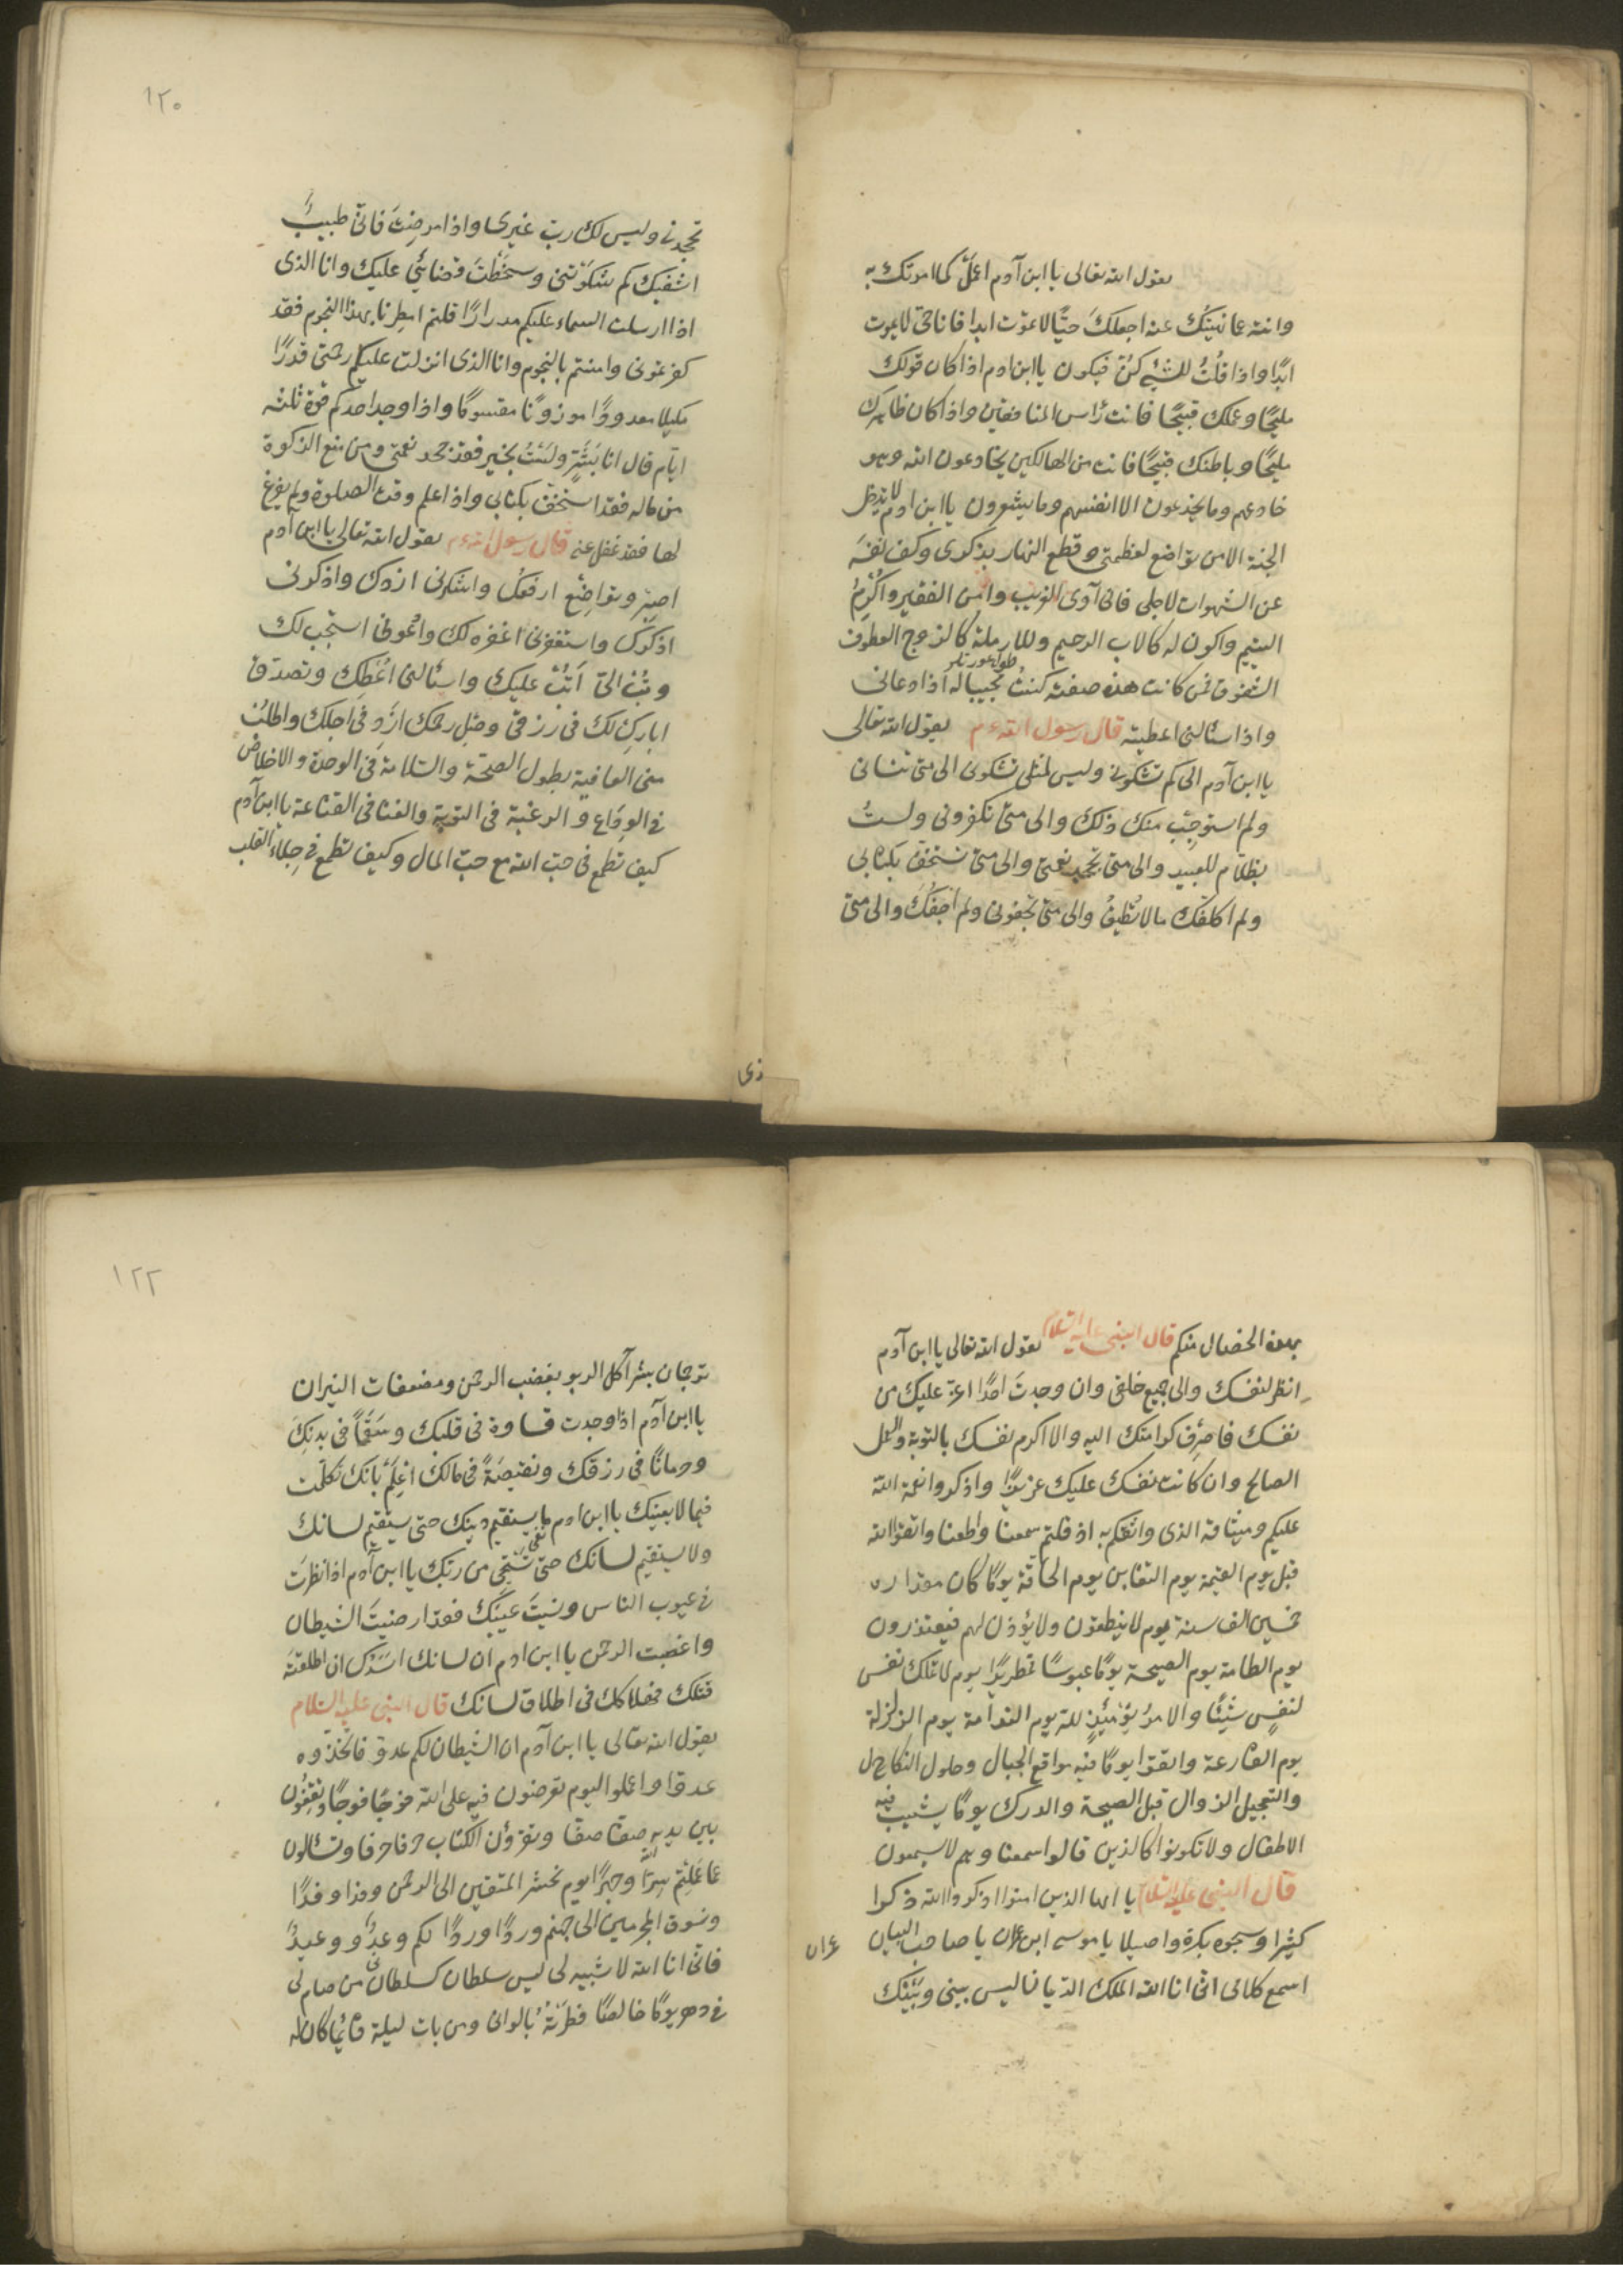 يقول الله تعالى يا ابن آدم اعمل كما امرتك به
وانته عما نهيتك عنه اجعلك حيًّا لا تموت ابدا فانا حي لا يموت
ابدًا واذا قلتُ للشئ كن فيكون يا ابن ادم اذا كان قولك
مليحًا وعملك قبيحًا فانت رأس المنافقين واذا كان ظاهرك
مليحًا وباطنك قبيحًا فانت من الهالكين يخادعون الله وهو
خادعهم وما يخدعون الا انفسهم وما يشعرون يا ابن ادم لا يدخل
الجنة الا من تواضع لعظمتى وقطع النهار بذكرى وكف نفسَه
عن الشهوات لاجلى فانى آوى الغريب وامن الفقير واُكْرِمُ
اليتيم واكون له كالاب الرحيم وللارملة كالزوج العطوف
الشفوق فمن كانت هذه صفته كنتُ مجيبا له اذا دعانى
واذا سئالنى اعطيته قال رسول الله ءم يقول الله تعالى
يا ابن آدم الى كم تشكونى وليس لمثلى تشكوى الى متى تنسانى
ولم استوجِب منك ذلك والى متى تكفرونى ولستُ
بظلام للعبيد والى متى تجحد نعمتى والى متى تستخف بكتابى
ولم اكلفك ما لا تُطيقُ والى متى تجفونى ولم اجفُك والى متى
١٢٠
تجحدنى وليس لك رب غيرى واذا مرضتَ فاىّ طبيب
اشفيك كم شكوتنى وسخطتَ قضائي عليك وانا الذى
اذا ارسلت السماء عليكم مدرارًا قلتم امطرنا بهذا النجوم فقد
كفرتمونى وامنتم بالنجوم وانا الذى انزلت عليكم رحمتى قدرًا
مكيلا معدودًا موزونًا مقسومًا واذا وجد احدكم قوة ثلثة
ايام قال انا بشَرٍّ ولستُ بخير فقد جحد نعمتى ومن منع الزكوة
من ماله فقد استخف بكتابى واذا علم وقت الصلوة ولم يفرغ
لها فقد غفل عنه قال رسول الله ءم يقول الله تعالى يا ابن آدم
اصبر وتواضع ارفعك واشكرنى ازدك واذكرونى
اذكرك واستغفرنى اغفره لك وادعونى استجب لك
وتُبْ الىّ اَتُبْ عليك واسئالنى اُعْطِك وتصدق
ابارك لك فى رزقى وصِل رحمك ازِد فى اجلك واطلب
منى العافية بطول الصحة والسلامة فى الوحدة والاخلاص
فى الوداع والرغبة فى التوبة والغنا فى القناعة يا ابن آدم
كيف تطمع فى حب الله مع حب المال وكيف تطمع فى جلاء القلب
بهذه الخصال منكم قال النبى عليه السلام يقول الله تعالى يا ابن آدم
انظر لنفسك والى جميع خلقى وان وجدتَ احدًا اعز عليك من
نفسك فاصرف كرامتك اليه والا اكرم نفسك بالتوبة والعمل
الصالح وان كانت نفسك عليك عزيزًا واذكروا نعمة الله
عليكم وميثاقه الذى واثقكم به اذ قلتم سمعنا واطعنا واتقوا الله
قبل يوم القيمة يوم التغابن يوم الحاقة يومًا كان مقداره
خمسين الف سنة يوم لا ينطقون ولا يؤذن لهم فيعتذرون
يوم الطامة يوم الصيحة يومًا عبوسًا قمطريرًا يوم لا تملك نفس
لنفسٍ شيئًا والامرُ يومئذٍ لله يوم الندامة يوم الزلزلة
يوم القارعة واتقوا يومًا فيه مواقع الجبال وحلول النكال
والتعجيل الزوال قبل الصيحة والدرك يومًا يشيب فيه
الاطفال ولا تكونوا كالذين قالوا سمعنا وهم لا يسمعون
قال النبى عليه السلام يا ايها الذين امنوا اذكروا الله ذكرا
كثيرا وسبحوه بكرة واصيلا يا موسى ابن عمران يا صاحب البيان
عمران
اسمع كلامى انى انا الله الملك الديان ليس بينى وبينك
١٢٢
ترجمان بشر آكل الربو بغضب الرحمن ومضعفات النيران
يا ابن آدم اذا وجدت قساوة فى قلبك وسقمًا فى بدنك
وحرمانًا فى رزقك ونقيصةً فى مالك اعلم بانك تكلمت
فيما لا يعنيك يا ابن ادم ما يستقيم دينك حتى يستقيم لسانك
ولا يستقيم لسانك حتى تستحى من ربك يا ابن آدم اذا نظرت
فى عيوب الناس ونسيتَ عيبك فقد ارضيتَ الشيطان
واغضبت الرحمن يا ابن ادم ان لسانك اسدك ان اطلقته
قتلك فهلاكك فى اطلاق لسانك قال النبى عليه السلام
يقول الله تعالى يا ابن آدم ان الشيطان لكم عدو فاتخذوه
عدوا واعملوا اليوم تعرضون فيه على الله فوجًا فوجًا وتقفون
بين يديه صفا صفا وتقرؤن الكتاب حرفا حرفا وتسئالون
عما عملتم سرًّا وجهرًا يوم نحشر المتقين الى الرحمن وفدا وفدًا
ونسوق المجرمين الى جهنم وردًا وردًا لكم وعد ووعيد
فانى انا الله لا شبيه لى ليس سلطان كسلطانى من صام لى
فى دهر يومًا خالصًا فطرته بالوانى ومن بات ليلة قائما كان له